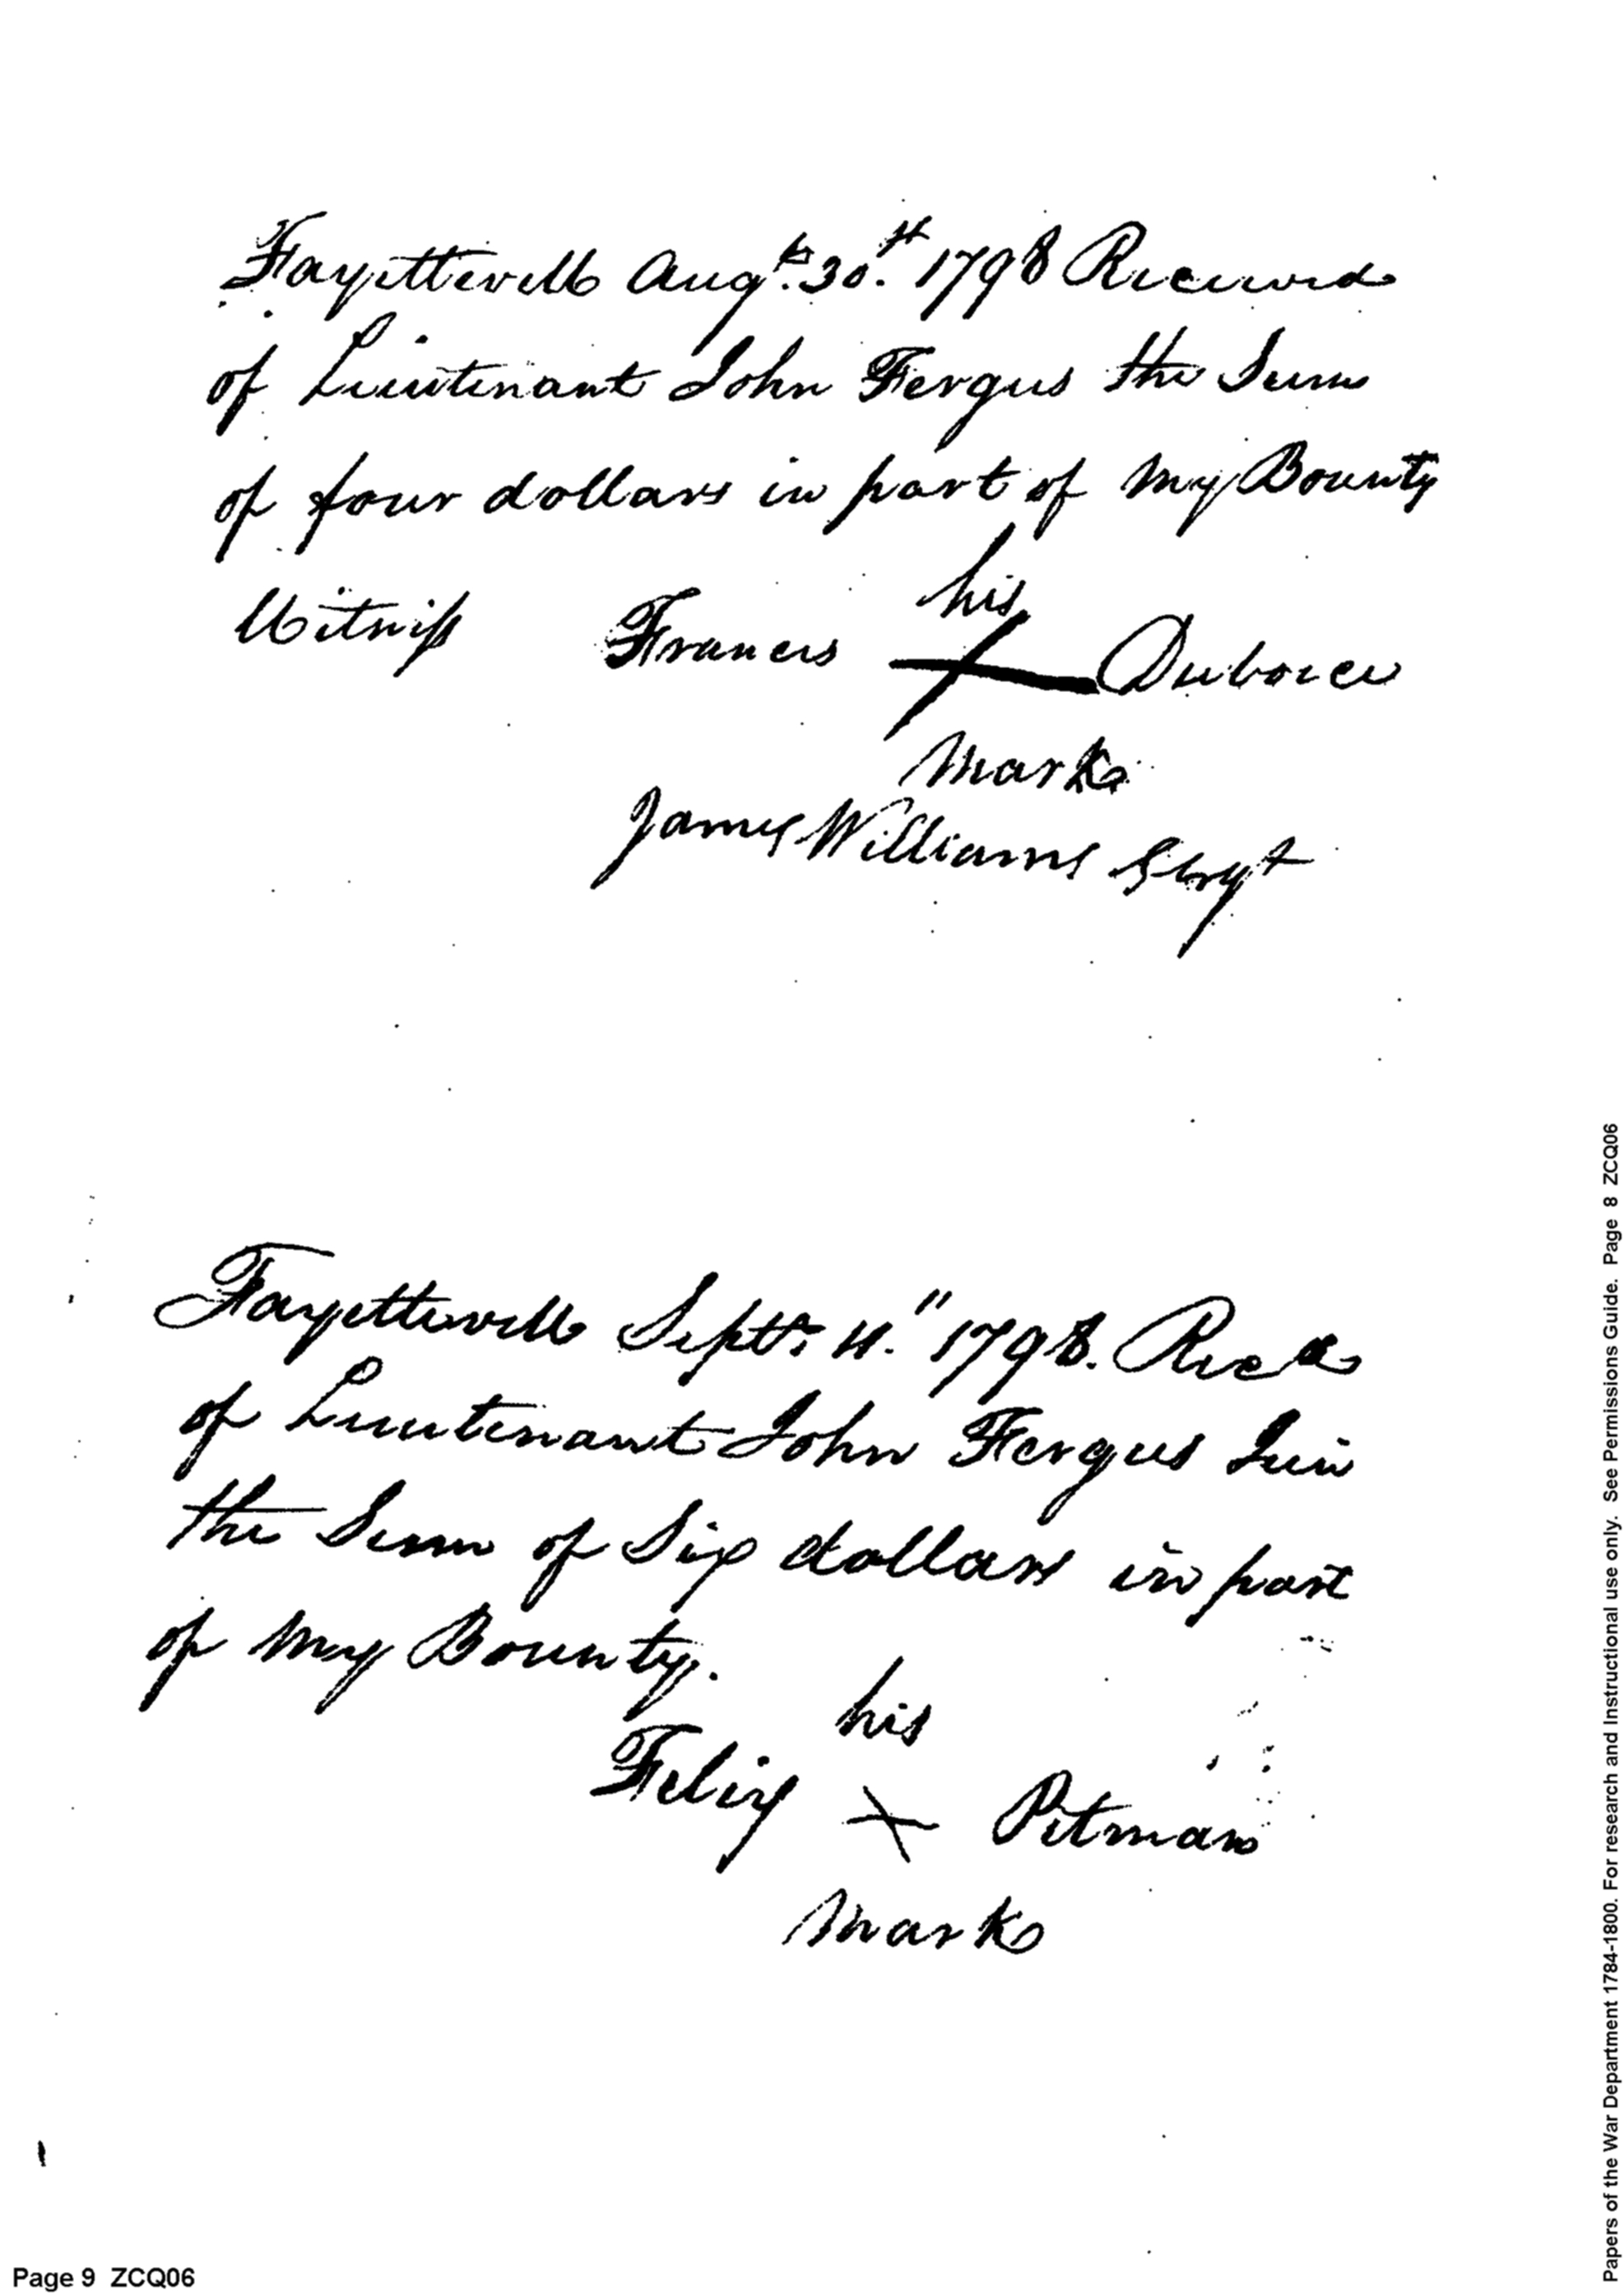 Fayetteville Augt. 30th. 1798 Received
of Lieutenant John Fergus the Sum
of four dollars in part of my Bounty
Witness Francis his Duboice
mark
James Williams Sergt
Fayetteville Septr. 4." 1798. Recd
of Lieutenant John Fergus Jun
the Sum of Six dollars in part
of my Bounty.
his
Felix X Pitman
mark
Page 9 ZCQ06
Papers of the War Department 1784-1800. For research and Instructional use only. See Permissions Guide. Page 8 ZCQ06